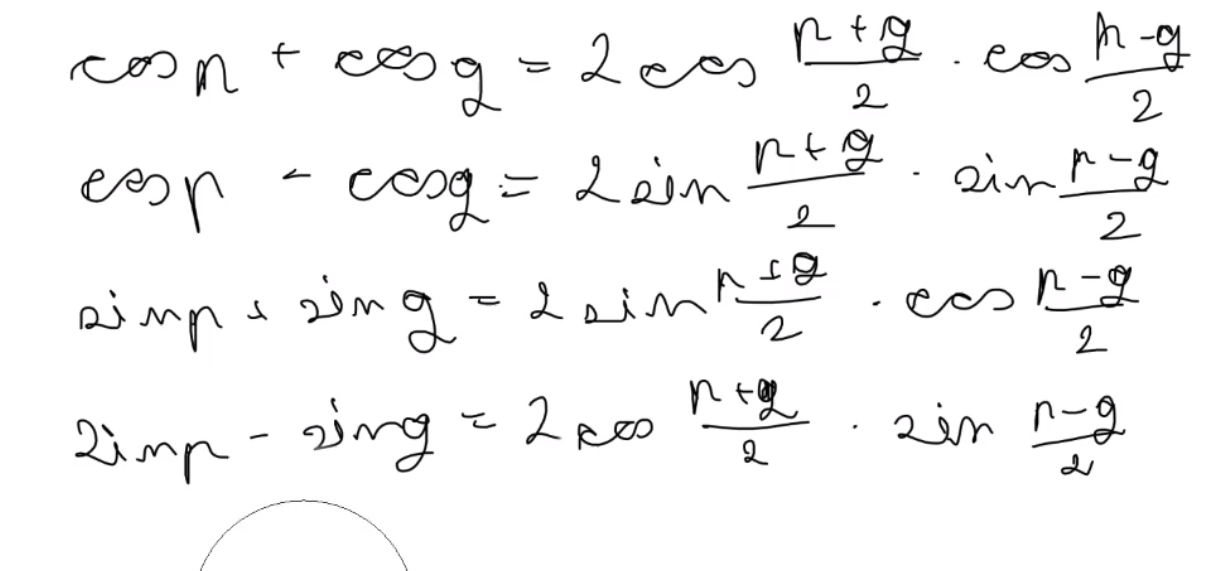 cos p + cos q = 2 cos (p + q)/2 · cos (p - q)/2
cos p - cos q = 2 sin (p + q)/2 · sin (p - q)/2
sin p + sin q = 2 sin (p + q)/2 · cos (p - q)/2
sin p - sin q = 2 cos (p + q)/2 · sin (p - q)/2